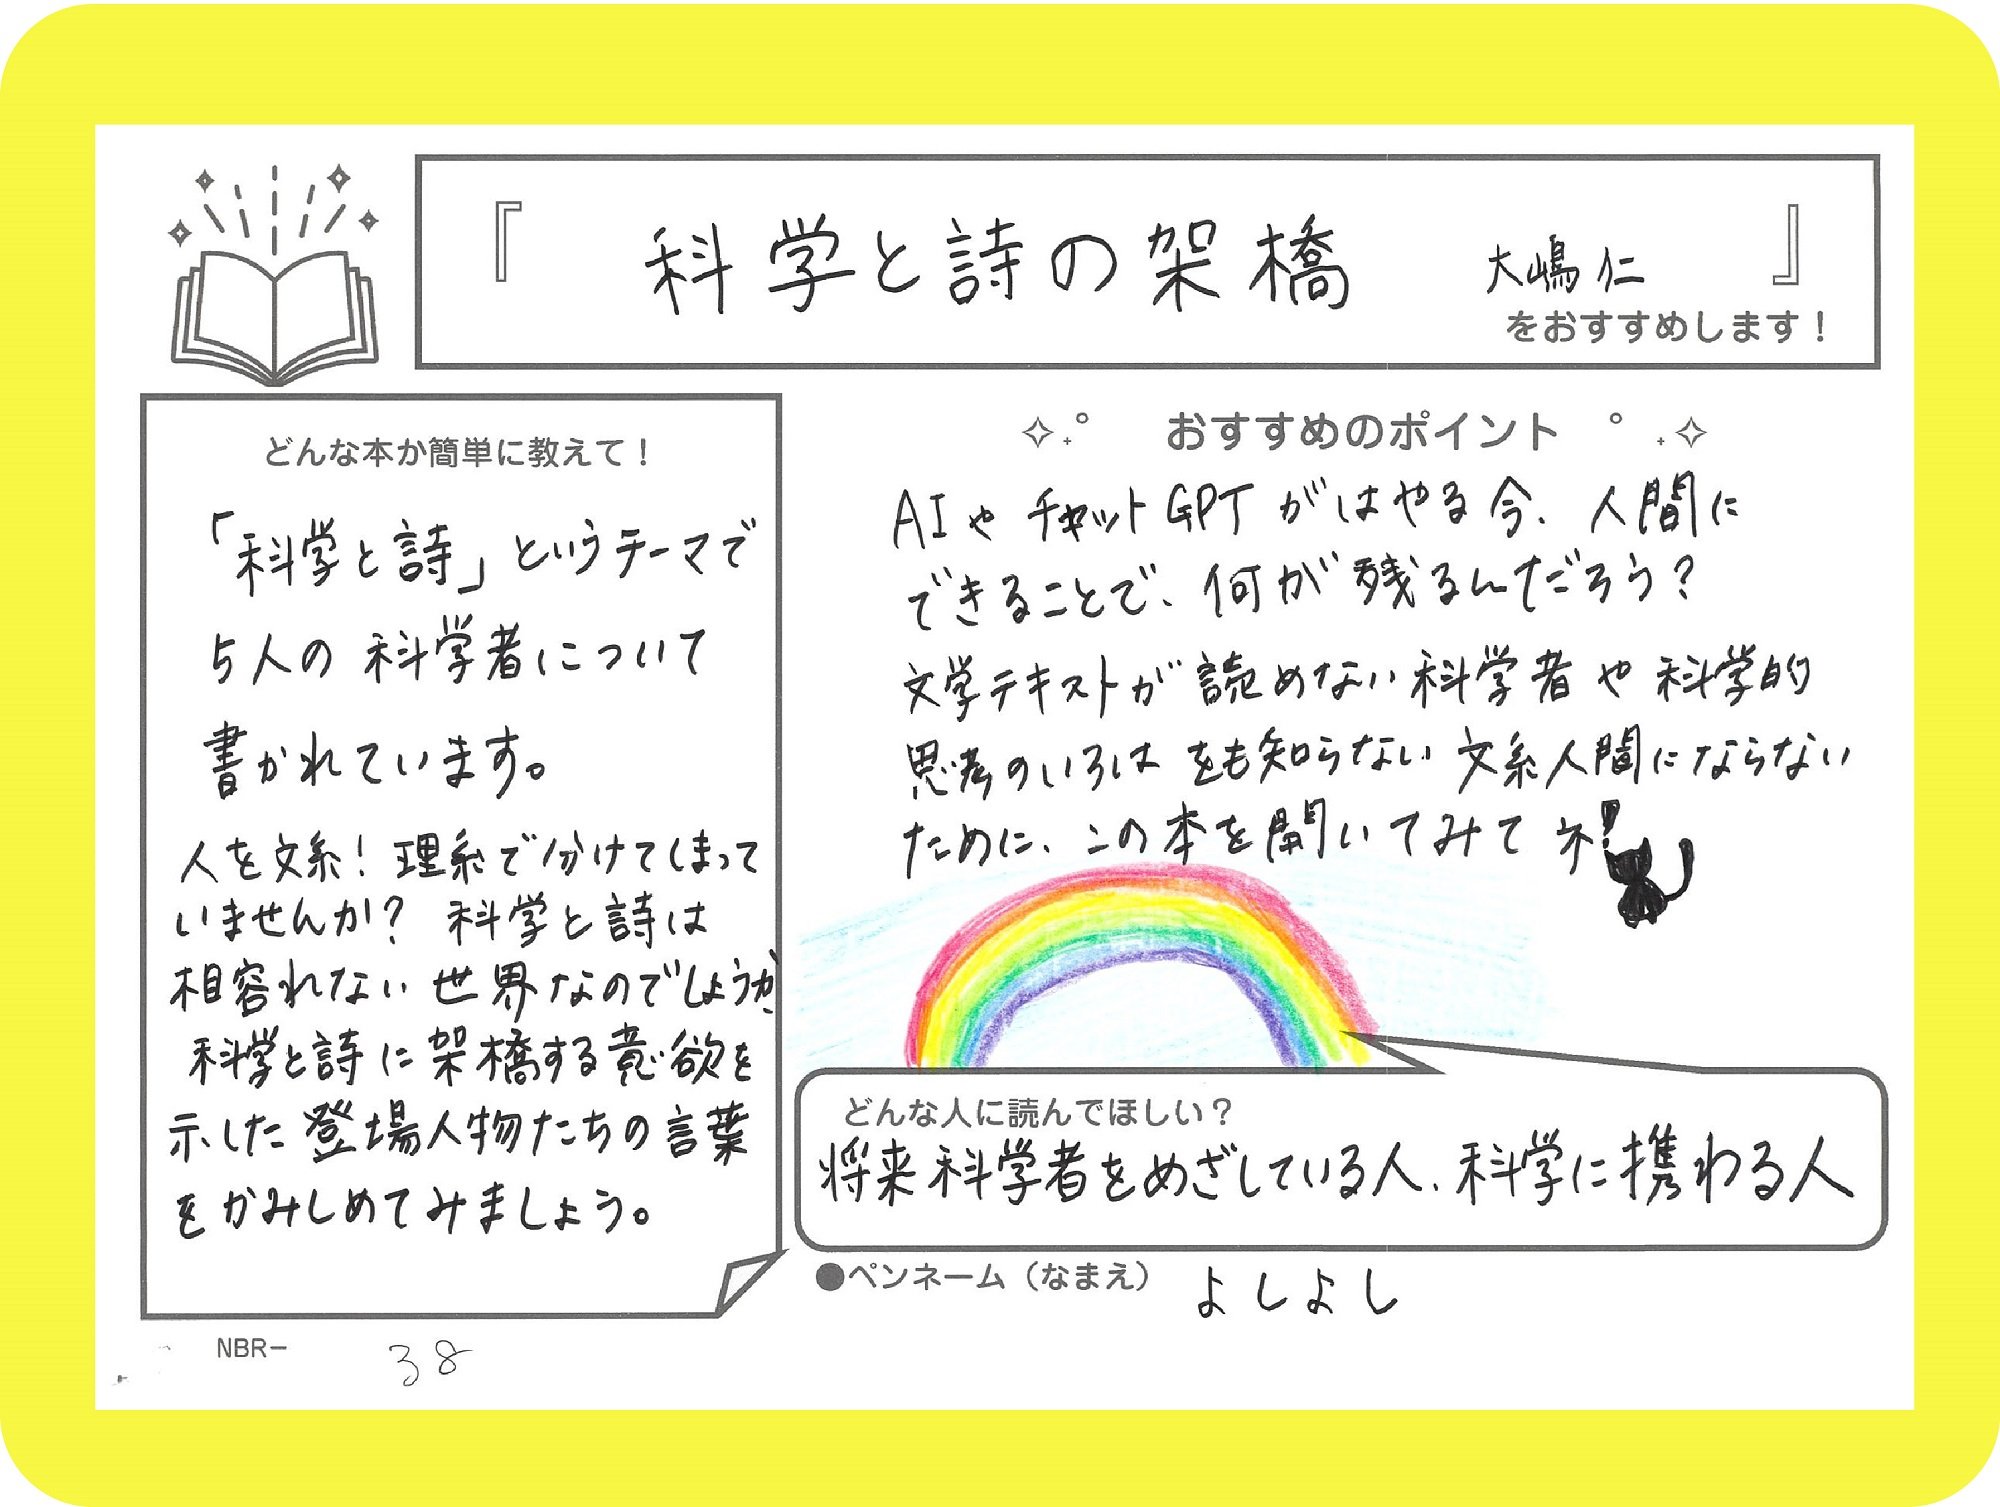 『 科学と詩の架橋 大嶋仁 』
をおすすめします！
どんな本か簡単に教えて！
「科学と詩」というテーマで
5人の科学者について
書かれています。
人を文系！理系で分けてしまって
いませんか？ 科学と詩は
相容れない世界なのでしょうか、
科学と詩に架橋する意欲を
示した登場人物たちの言葉
をかみしめてみましょう。
おすすめのポイント
AIやチャットGPTがはやる今、人間に
できることで、何が残るんだろう？
文学テキストが読めない科学者や科学的
思考のいろはをも知らない文系人間にならない
ために、この本を開いてみてネ！
どんな人に読んでほしい？
将来科学者をめざしている人、科学に携わる人
●ペンネーム（なまえ） よしよし
NBR− 38